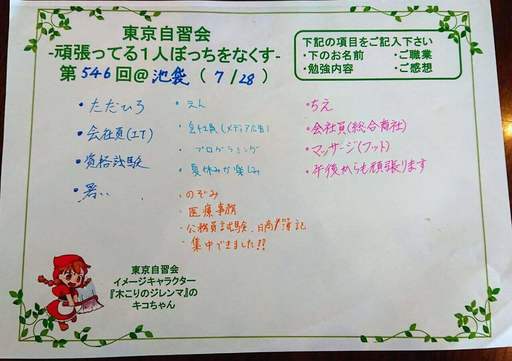 東京自習会
-頑張ってる１人ぼっちをなくす-
第546回@池袋（7/28）
下記の項目をご記入下さい
・下のお名前 ・ご職業
・勉強内容 ・ご感想
・ただひろ
・会社員(IT)
・資格試験
・暑い
・えん
・会社員(メディア広告)
・プログラミング
・夏休みが楽しみ
・のぞみ
・医療事務
・公務員試験、日商簿記
・集中できました!!
・ちえ
・会社員(総合商社)
・マッサージ(フット)
・午後からも頑張ります
東京自習会
イメージキャラクター
『木こりのジレンマ』の
キコちゃん